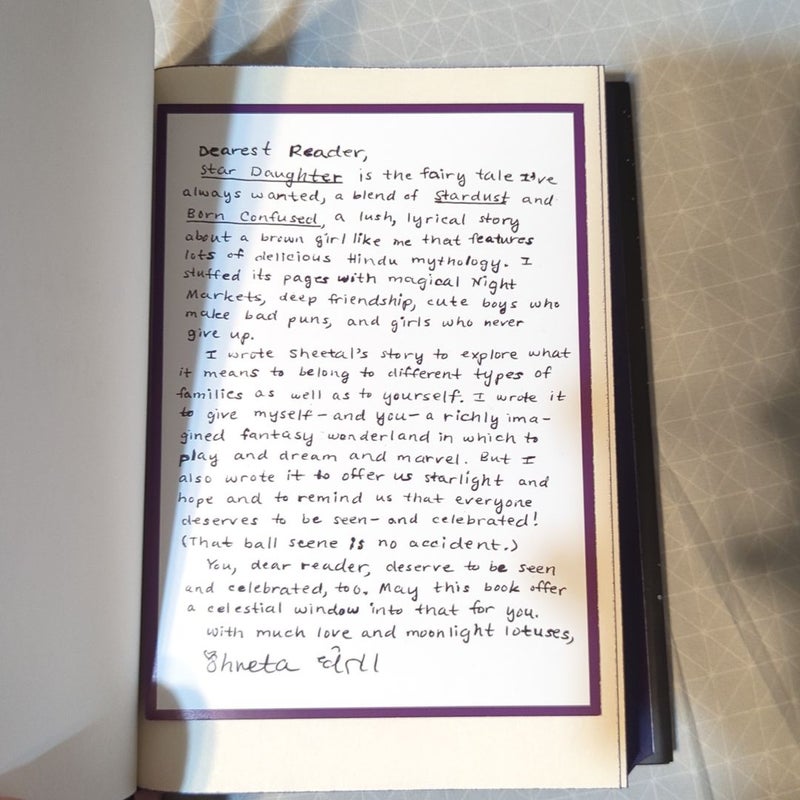 Dearest Reader,
Star Daughter is the fairy tale I've
always wanted, a blend of Stardust and
Born Confused, a lush, lyrical story
about a brown girl like me that features
lots of delicious Hindu mythology. I
stuffed its pages with magical Night
Markets, deep friendship, cute boys who
make bad puns, and girls who never
give up.
I wrote Sheetal's story to explore what
it means to belong to different types of
families as well as to yourself. I wrote it
to give myself-and you-a richly ima-
gined fantasy wonderland in which to
play and dream and marvel. But I
also wrote it to offer us starlight and
hope and to remind us that everyone
deserves to be seen-and celebrated!
(That ball scene is no accident.)
You, dear reader, deserve to be seen
and celebrated, too. May this book offer
a celestial window into that for you.
With much love and moonlight lotuses,